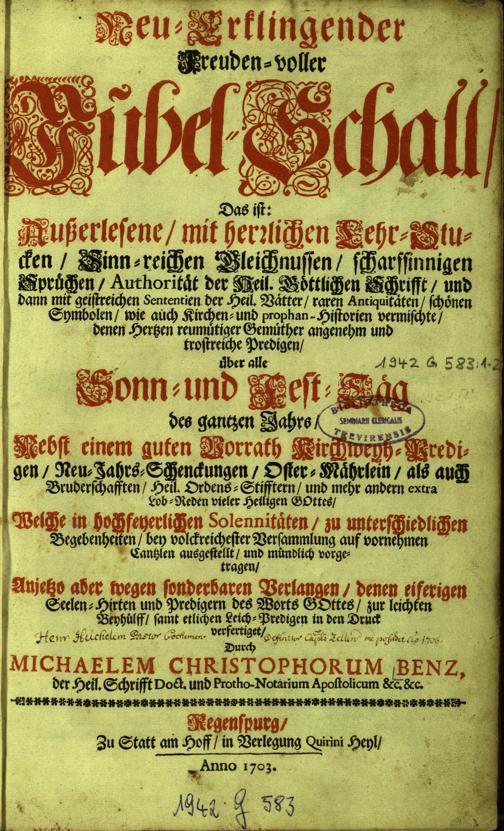 Neu-Erklingender
Freuden-voller
Jubel-Schall/
Das ist:
Außerlesene/ mit herrlichen Lehr-Stu-
cken/ Sinn-reichen Gleichnussen/ scharffsinnigen
Sprüchen/ Authorität der Heil. Göttlichen Schrifft/ und
dann mit geistreichen Sententien der Heil. Vätter/ raren Antiquitäten/ schönen
Symbolen/ wie auch Kirchen- und prophan-Historien vermischte/
denen Hertzen reumütiger Gemüther angenehm und
trostreiche Predigen/
über alle
1942 G 583:1-2
Sonn- und Fest-Täg
des gantzen Jahrs/
BIBLIOTHECA
SEMINARII CLERICALIS
TREVIRENSIS
Nebst einem guten Vorrath Kirchweyh-Predi-
gen/ Neu-Jahrs-Schenckungen/ Oster-Mährlein/ als auch
Bruderschafften/ Heil. Ordens-Stifftern/ und mehr andern extra
Lob-Reden vieler Heiligen GOttes/
Welche in hochfeyerlichen Solennitäten/ zu unterschiedlichen
Begebenheiten/ bey volckreichester Versammlung auf vornehmen
Cantzlen ausgestellt/ und mündlich vorge-
tragen/
Anjetzo aber wegen sonderbaren Verlangen/ denen eiferigen
Seelen-Hirten und Predigern des Worts GOttes/ zur leichten
Beyhülff/ samt etlichen Leich-Predigen in den Druck
verfertiget/
Pastor
Durch
MICHAELEM CHRISTOPHORUM BENZ,
der Heil. Schrifft Doct. und Protho-Notarium Apostolicum &c. &c.
Regenspurg/
Zu Statt am Hoff/ in Verlegung Quirini Heyl/
Anno 1703.
1942 G 583